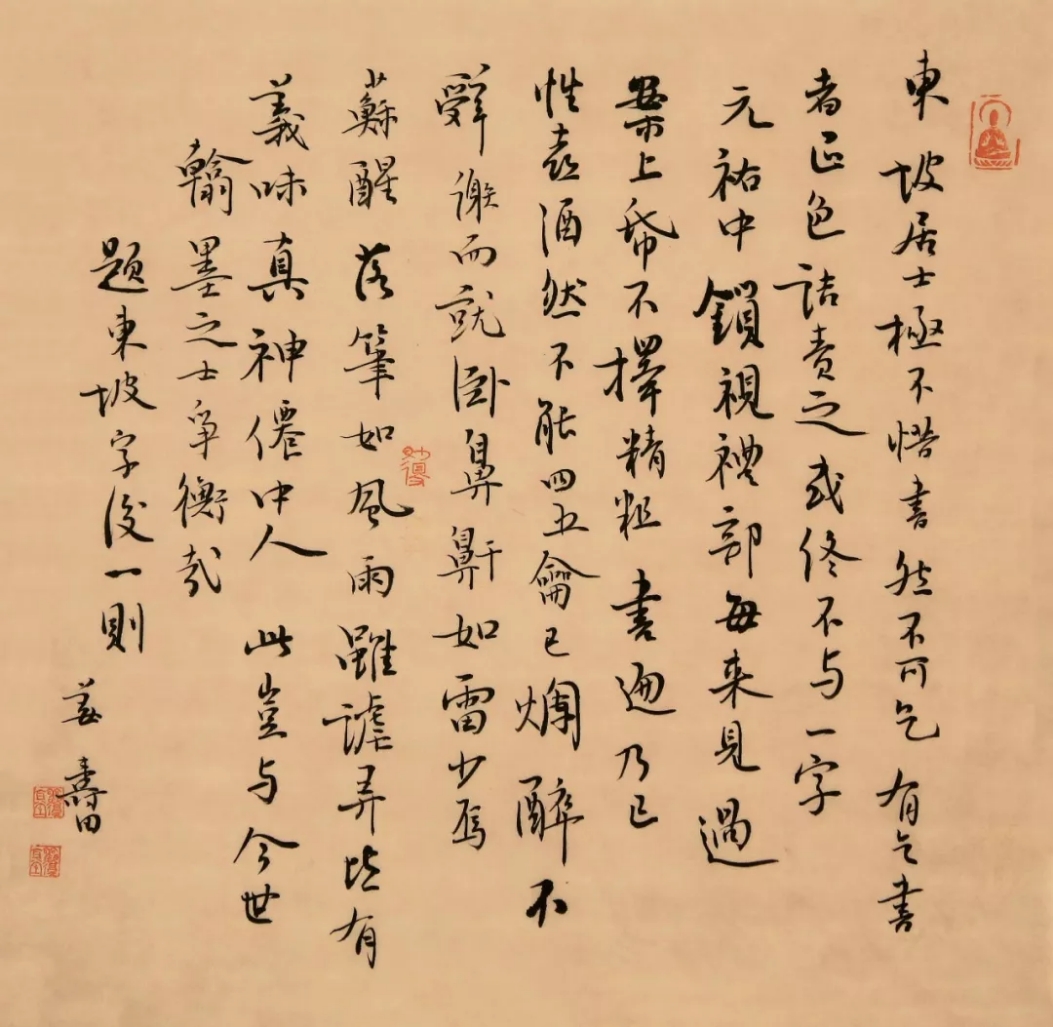 東坡居士極不惜書然不可乞有乞書
者正色詰責之或終不与一字
元祐中鎖視禮部每来見過
案上帋不擇精粗書遍乃已
性喜酒然不能四五龠已爛醉不
辞謝而就卧鼻鼾如雷少焉
蘇醒落筆如風雨雖謔弄皆有
義味真神僊中人此豈与今世
翰墨之士争衡哉
題東坡字後一則
姜壽田
妙得